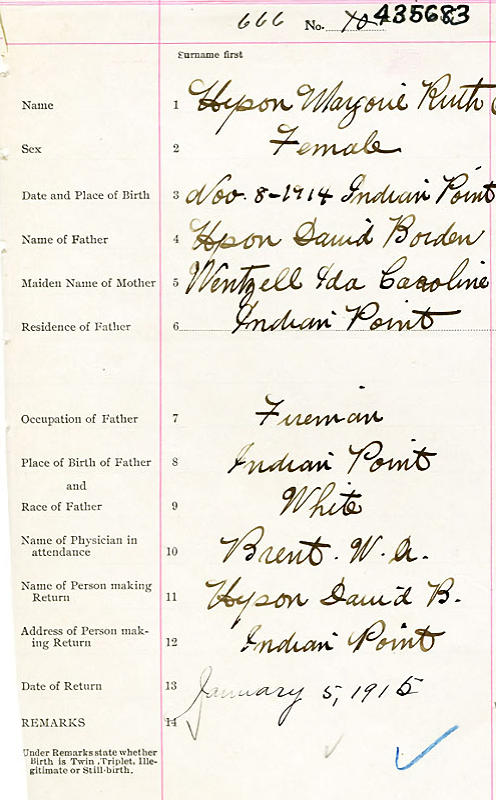 666 No. 70 435683
Surname first
Name 1 Hyson Marjorie Ruth
Sex 2 Female
Date and Place of Birth 3 Nov. 8-1914 Indian Point
Name of Father 4 Hyson David Borden
Maiden Name of Mother 5 Wentzell Ida Caroline
Residence of Father 6 Indian Point
Occupation of Father 7 Fireman
Place of Birth of Father 8 Indian Point
and
Race of Father 9 White
Name of Physician in
attendance 10 Brent. W. A.
Name of Person making
Return 11 Hyson David B.
Address of Person mak-
ing Return 12 Indian Point
Date of Return 13 January 5, 1915
REMARKS 14
Under Remarks state whether
Birth is Twin, Triplet, Ille-
gitimate or Still-birth.